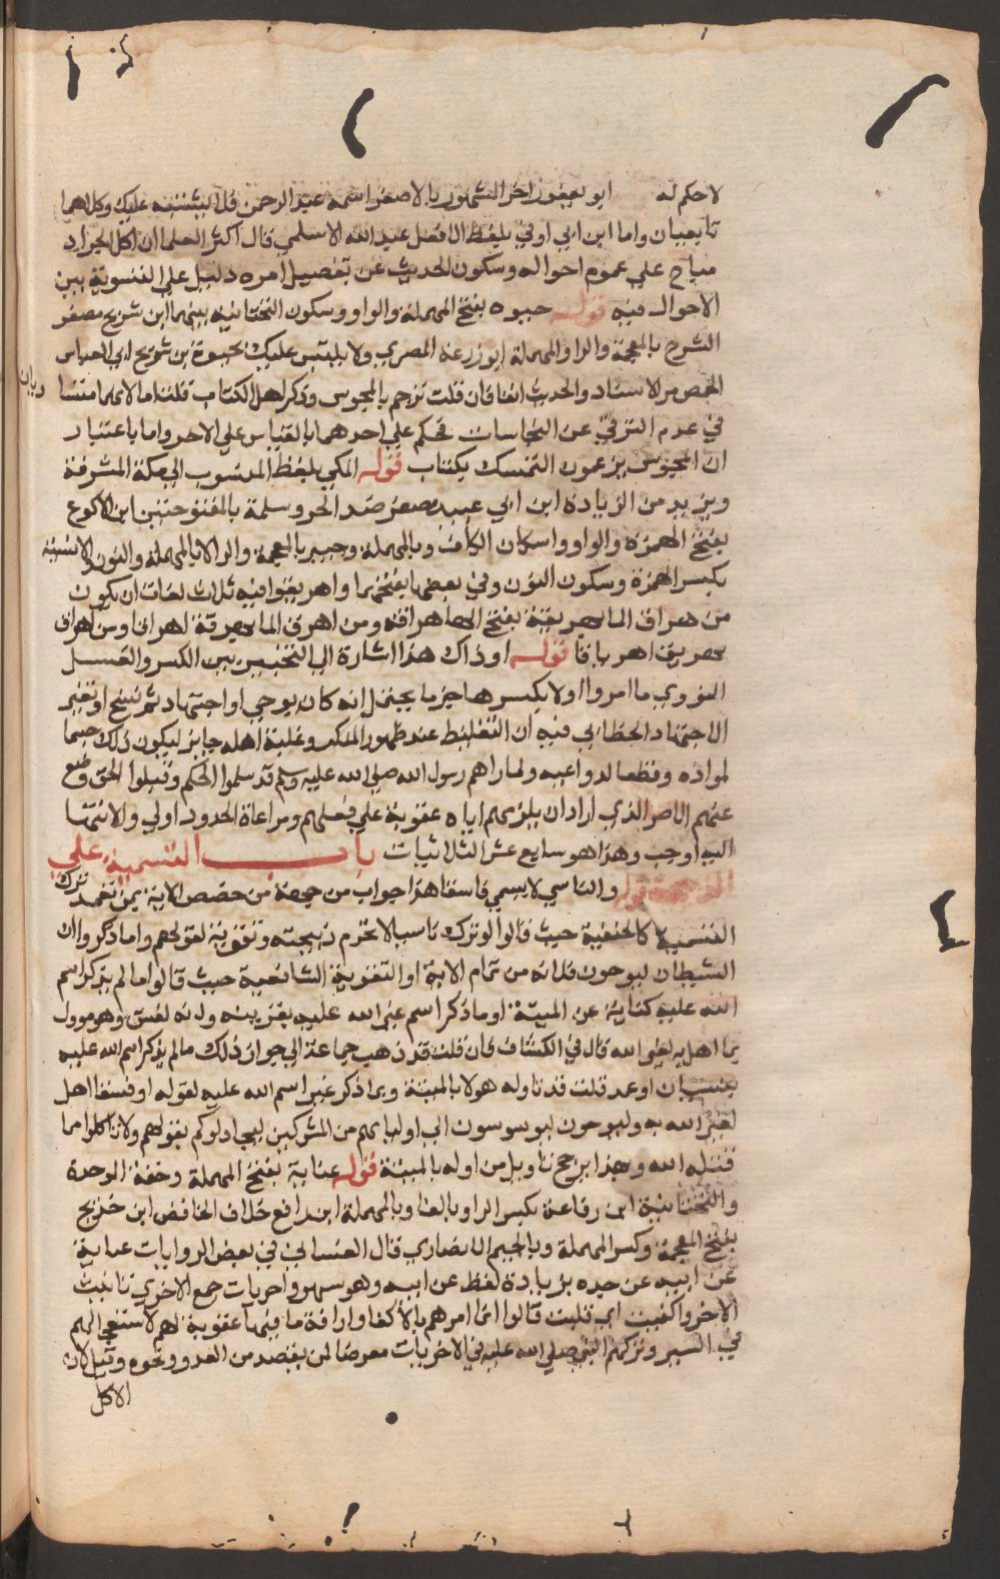 لا حكم له ابو يعفور اخر المشهور بالاصغر اسمه عبد الرحمن قلت يشتبه عليك وكلاهما
تابعيان واما ابن ابي اوفي بلفظ الافعل عبد الله الاسلمي قال اكثر العلما ان اكل الجراد
مباح علي عموم احواله وسكون الحديث عن تفصيل امره دليل علي التسوية بين
الاحوال فيه قوله حيوه بفتح المهملة والواو وسكون التحتانية بينهما ابن شريح مصغر
الشرح بالمعجمة والراو المهملة ابو زرعة المصري ولا يلتبس عليك بحيوة بن شريح ابي العباس
الحمصي الاسناد والحديث انفا فان قلت ترجم بالمجوس وذكر اهل الكتاب قلت اما لانهما متسا ويان
في عدم التوقي عن النجاسات فحكم علي احدهما بالقياس علي الاخر واما باعتبار
ان المجوس يزعمون التمسك بكتاب قوله المكي بلفظ المنسوب الي مكة المشرفة
ويزيد من الزيادة ابن ابي عبيد مصغر ضد الحر وسلمة بالمفتوحتين ابن الاكوع
بفتح الهمزة والواو واسكان الكاف وبالمهملة وخيبر بالمعجمة والرا لا بالمهملة والنون والانسية
بكسر الهمزة وسكون النون وفي بعضها بفتحهما واهريقوا فيه ثلاث لغات ان يكون
من هراق الما يهريقه بفتح الها هراقة ومن اهرق الما يهرقة اهراقا ومن اهراق
يهريق اهرياقا قوله او ذاك هذا اشارة الي التخيير بين الكسر والغسل
النووي ما امروا اولا بكسرها جزما يحتمل انه كان بوحي او اجتهاد ثم نسخ او تغير
الاجتهاد الخطابي فيه ان التغليظ عند ظهور المنكر وغلبة اهله جايز ليكون ذلك حسما
لمواده وقطعا لدواعيه ولما راهم رسول الله صلي الله عليه وسلم قد سلموا الحكم وقبلوا الحق وضع
عنهم الاصر الذي اراد ان يلزمهم اياه عقوبة علي فعلهم ومراعاة الحدود اولي والانتها
اليه اوجب وهذا هو سابع عشر الثلاثيات باب التسمية علي
الذبيحة قوله والناسي لا يسمي فاسقا هذا جواب من جهة من خصص الاية بمن تعمد ترك
التسمية كالحنفية حيث قالوا لو ترك ناسيا لا تحرم ذبيحته وتقوية لقولهم واما ذكر وان
الشيطان ليوحون فلانه من تمام الاية او التقوية الشافعية حيث قالوا ما لم يذكر اسم
الله عليه كناية عن الميتة او ما ذكر اسم غير الله عليه بقرينة وانه لفسق وهو موول
بما اهل به لغير الله قال في الكشاف فان قلت قد ذهب جماعة الي جواز ذلك ما لم يذكر اسم الله عليه
بنسيان او عمد قلت قد تاوله هولا بالميتة وبما ذكر غير اسم الله عليه لقوله او فسقا اهل
لغير الله به وليوحون ليوسوسون الي اوليايهم من المشركين ليجادلوكم بقولهم ولا تاكلوا مما
قتله الله وبهذا يرجح تاويل من اوله بالميتة قوله عباية بفتح المهملة وخفة الموحدة
والتحتانية ابن رفاعة بكسر الرا وبالفا وبالمهملة ابن رافع خلاف الخافض ابن خديج
بفتح المعجمة وكسر المهملة وبالجيم الانصاري قال الغساني في بعض الروايات عباية
عن ابيه عن جده بزيادة لفظ عن ابيه وهو سهو واخريات جمع الاخري تانيث
الاخر واكفيت اي قلبت قالوا انما امرهم بالاكفا واراقة ما فيها عقوبة لهم لاستعجالهم
في السير وتركهم النبي صلي الله عليه في الاخريات معرضا لمن يقصده من العدو ونحوه وقيل لان
الاكل